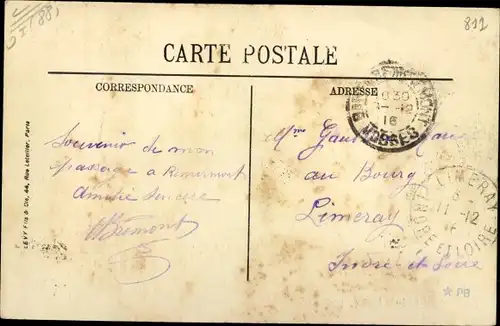 812
CARTE POSTALE
CORRESPONDANCE
ADRESSE
Souvenir de mon
passage à Remiremont
Amitié sincère
Bremont
LEVY Fils & Cie, 44, Rue Letellier, Paris
Mme
au Bourg
Limeray
Indre et Loire
REMIREMONT
16
VOSGES
LIMERAY
11-12
ET LOIRE
*PB